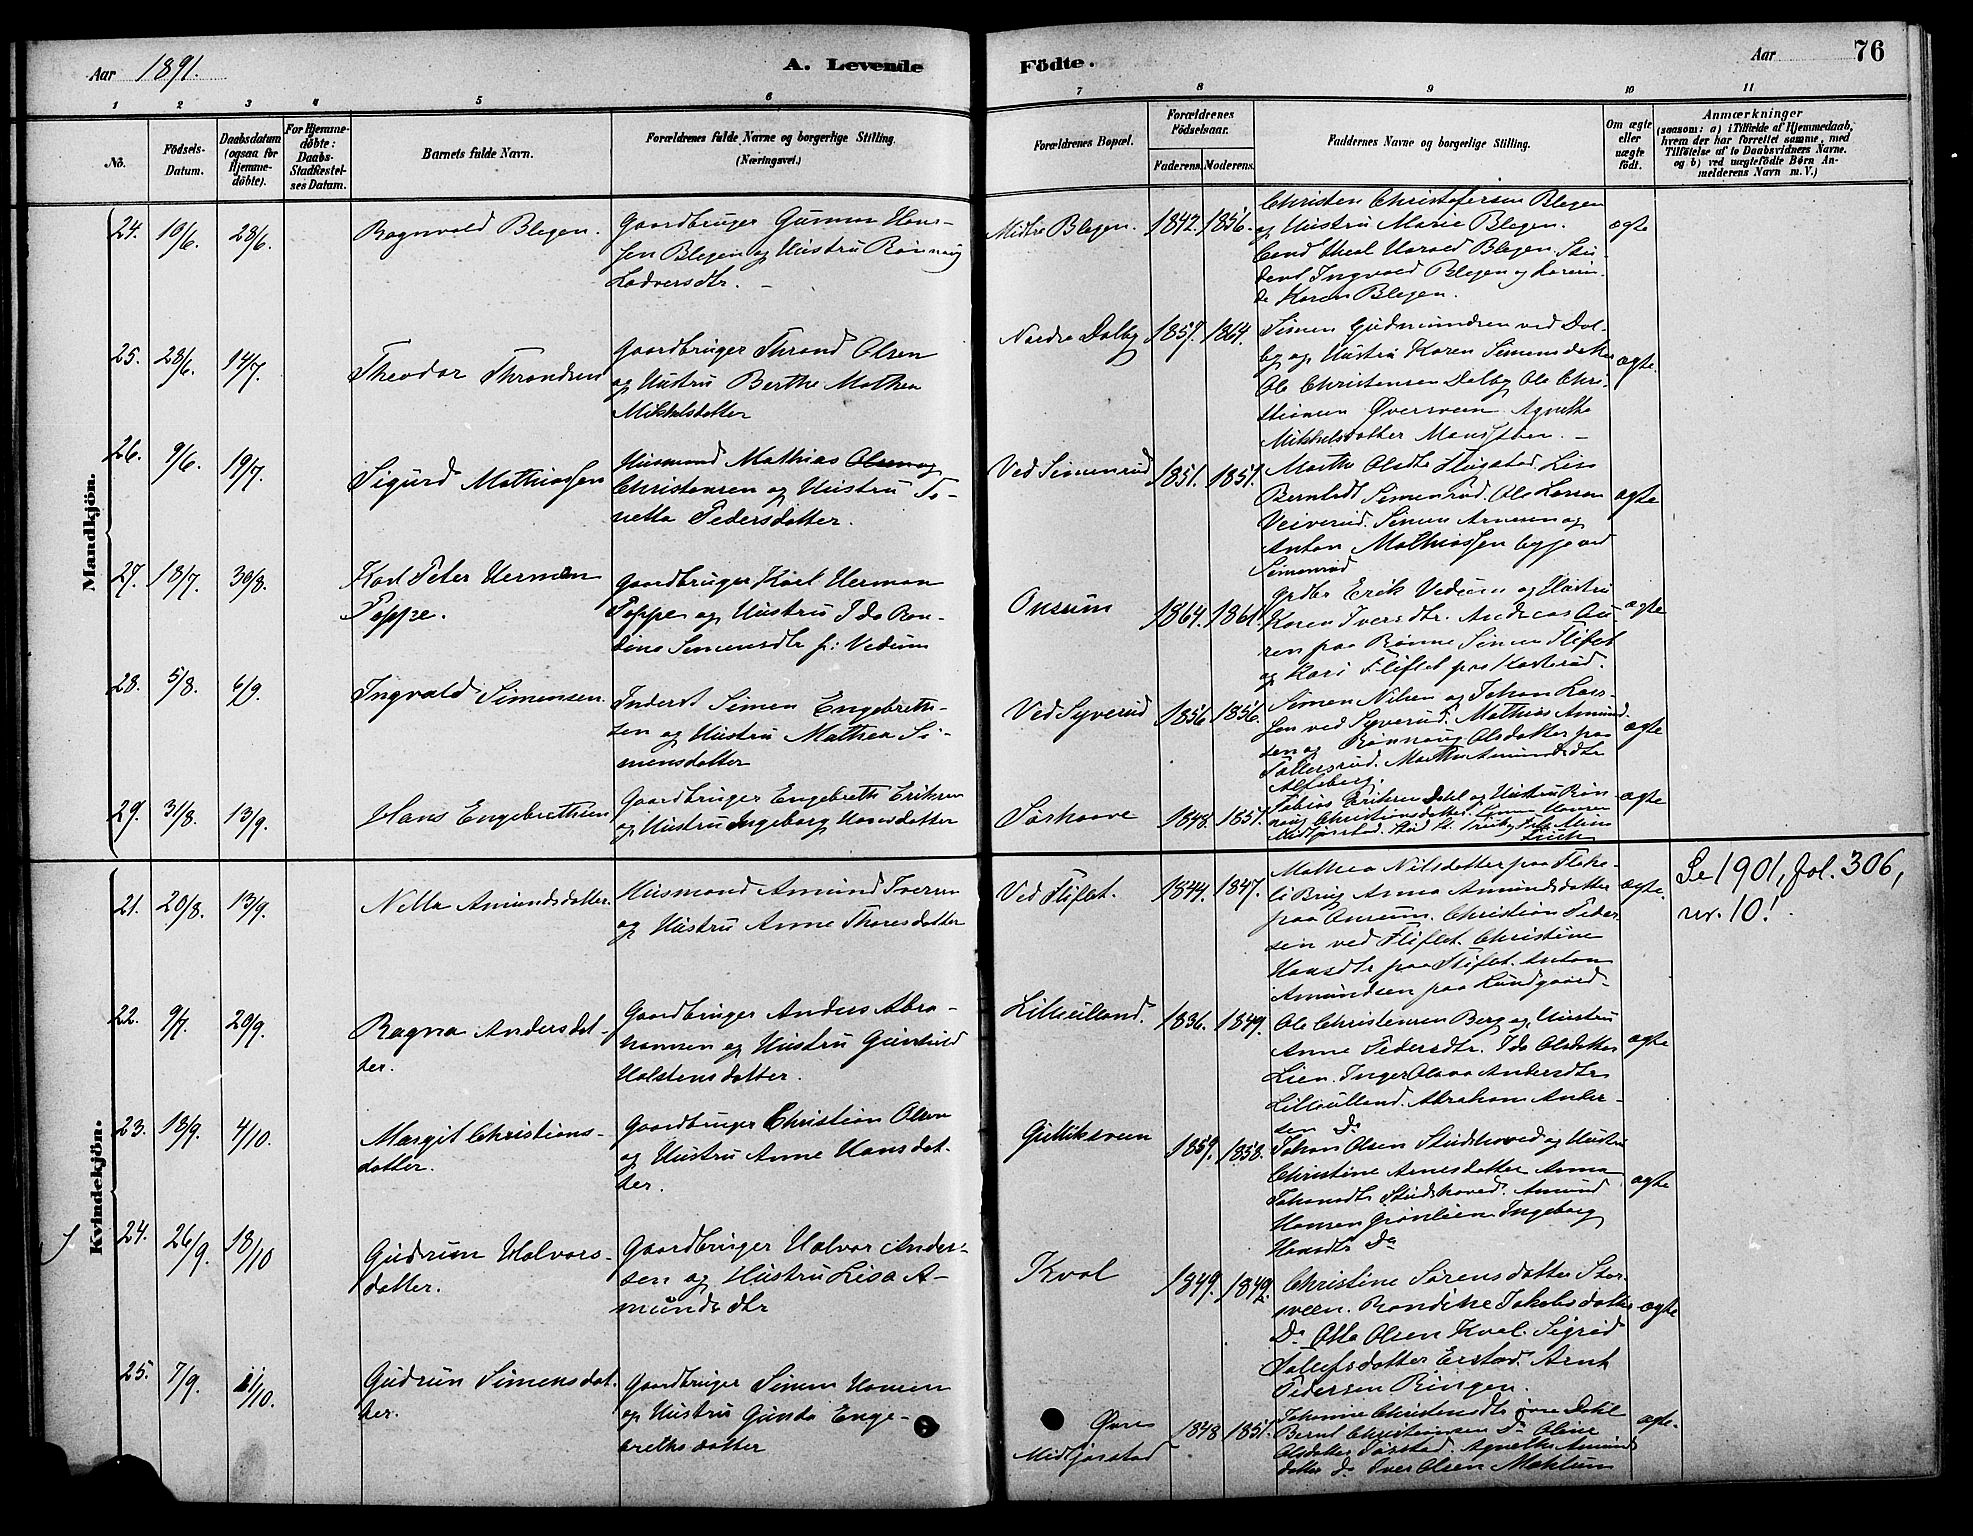 Aar 1891.
A. Levende
Födte.
Aar
76
1
2
3
4
5
6
7
8
9
10
11
No.
Födsels-
Datum.
Daabsdatum
(ogsaa for
Hjemme-
döbte).
For Hjemme-
döbte:
Daabs-
Stadfæstel-
ses Datum.
Barnets fulde Navn.
Forældrenes fulde Navne og borgerlige Stilling.
(Næringsvei.)
Forældrenes Bopæl.
Forældrenes
Födselsaar.
Faderens.
Moderens.
Faddernes Navne og borgerlige Stilling.
Om ægte
eller
uægte
födt.
Anmærkninger
(saasom: a) i Tilfælde af Hjemmedaab,
hvem der har forrettet samme, med
Tilföielse af to Daabsvidners Navne.
og b) ved uægtefödte Börn An-
melderens Navn m. V.)
Mandkjön.
24.
19/6.
28/6.
Ragnvald Blegen.
Gaardbruger Gunnar Han-
sen Blegen og Hustru Rønnaug
Lodversdtr.
Midtre Blegen.
1842.
1856.
Christen Christofersen Blegen
og Hustru Marie Blegen.
Cand theol Harald Blegen. Stu-
dent Ingvald Blegen og
Karen Blegen.
ægte
25.
28/6.
14/7.
Theodor Throndsen
Gaardbruger Thrond Olsen
og Hustru Berthe Mathea
Mikkelsdatter
Nordre Dalby
1857.
1864.
Simen Gudmundsen ved Dal-
by og Hustru Karen Simensdatter
Ole Christensen Dalby Ole Chri-
stiansen Øversveen Agnethe
Mikkelsdatter
ægte.
26.
9/6.
19/7.
Sigurd Mathiassen
Husmand Mathias
Christensen og Hustru To-
netta Pedersdatter.
Ved Simenrud
1851.
1851.
Marthe Olsdtr Flugstad Lisa
Berntsdt Simenrud. Ole Larsen
Veiverud. Simen Arnesen og
Anton Mathiassen begge ved
Simenrud
ægte
27.
18/7.
30/8.
Karl Peter Herman
Poppe.
Gaardbruger Karl Herman
Poppe og Hustru Ida Ran-
dine Simensdtr f: Vedum
Onsum
1864.
1861.
Grdbr Erik Vedum og Hustru
Karen Iversdtr. Andreas
paa Rønne Simen Fliflet
og Kari Fliflet paa
ægte
28.
5/8.
6/9.
Ingvald Simensen.
Inderst Simen Engebreth-
sen og Hustru Mathea Si-
mensdatter
Ved Syverud
1856.
1856.
Simen Nilsen og Johan Lars-
sen ved Syverud. Mathias Amund-
sen og Rønnaug Olsdatter paa
Marthe Amundsdtr
Alfeberg.
ægte
29.
31/8.
13/9.
Hans Engebrethsen
Gaardbruger Engebreth Eriksen
og Hustru Ingeborg Hansdatter
1848.
1851.
Tobias Eriksen Dahl og Hustru Røn-
naug Christiansdatter.
ægte
Kvindekjön.
21.
20/8.
13/9.
Nilla Amundsdatter.
Husmand Amund Iversen
og Hustru Anne Thoresdatter
Ved Fliflet.
1844.
1847.
Mathea Nilsdatter paa
Brug Anna Amundsdatter
paa Onsum. Christian Peder-
sen ved Fliflet. Christine
Hansdtr paa Fliflet. Anton
Amundsen paa Lundgaard.
ægte.
Se 1901, fol. 306,
nr. 10!
22.
9/7.
20/9.
Ragna Andersdat-
ter.
Gaardbruger Anders Abra-
hamsen og Hustru Gunhild
Halstensdatter.
Lilleulland.
1836.
1849.
Ole Christensen Berg og Hustru
Anne Pedersdtr. Ida Olsdatter
Lien. Inger Olava Andersdtr
Lilleulland. Abraham Ander-
sen Do
ægte
23.
18/9.
4/10.
Margit Christians-
datter.
Gaardbruger Christian Olsen
og Hustru Anne Hansdat-
ter.
Gulliksveen
1859.
1858.
Johan Olsen Studshoved og Hustru
Christine Arnesdatter Anna
Johansdtr Studshoved. Amund
Hansen Grønlien Ingeborg
Hansdtr Do
ægte
24.
26/9.
18/10
Gudrun Halvors-
datter.
Gaardbruger Halvor Ander-
sen og Hustru Lisa A-
mundsdtr
Kval
1849.
1849.
Christine Sørensdatter Stor-
sveen. Randine Jakobsdatter
Do Otto Olsen Kval. Sigrid
datter Erstad. Arnt
Pedersen Ringen.
ægte
25.
7/9.
11/10.
Gudrun Simensdat-
ter.
Gaardbruger Simen Hansen
og Hustru Gunda Enge-
brethsdatter
Øvre
Midtjørstad
1848
1851.
Johanne Christensdtr øvre Dahl
Bernt Christensen Do Oline
Olsdatter Agnethe Amunds
datter do Iver Olsen Mæhlum
ægte.